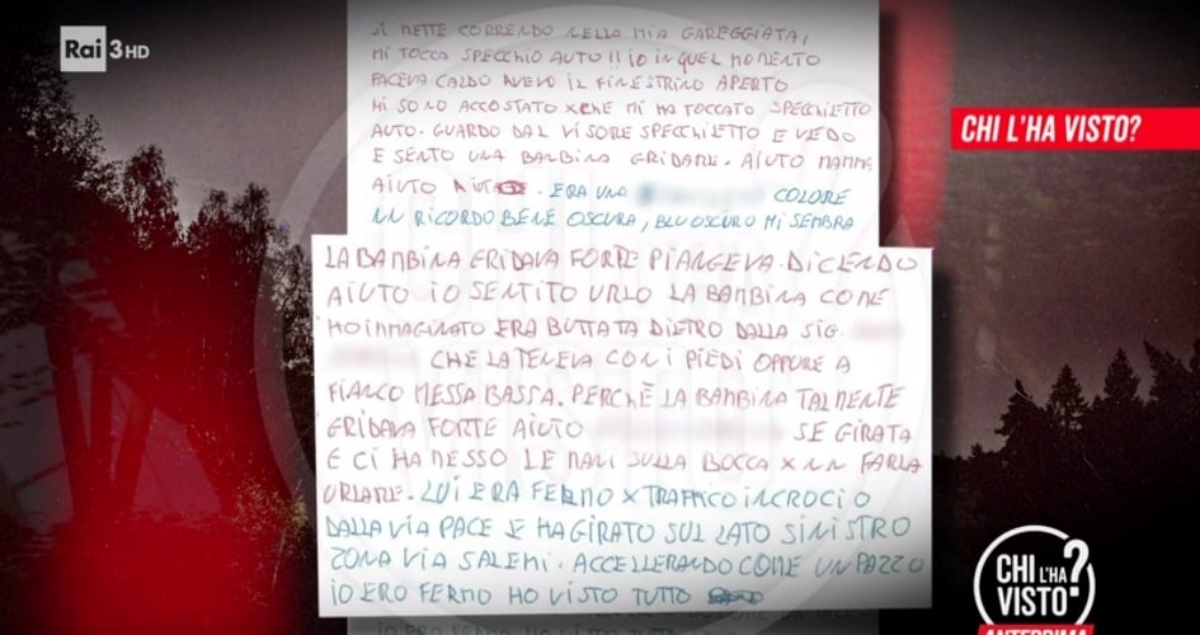 Rai 3HD
SI METTE CORRENDO NELLA MIA GAREGGIATA,
MI TOCCA SPECCHIO AUTO !! IO IN QUEL MOMENTO
FACEVA CALDO AVEVO IL FINESTRINO APERTO
MI SONO ACCOSTATO XCHE MI HA TOCCATO SPECCHIETTO
AUTO. GUARDO DAL VISORE SPECCHIETTO E VEDO
E SENTO UNA BAMBINA GRIDARE. AIUTO MAMMA
AIUTO AIUTO. ERA UNA COLORE
NN RICORDO BENE OSCURA, BLU OSCURO MI SEMBRA
LA BAMBINA GRIDAVA FORTE PIANGEVA. DICENDO
AIUTO IO SENTITO URLO LA BAMBINA COME
HO IMMAGINATO ERA BUTTATA DIETRO DALLA SIG.
CHE LA TENEVA CON I PIEDI OPPURE A
FIANCO MESSA BASSA. PERCHÈ LA BAMBINA TALMENTE
GRIDAVA FORTE AIUTO SE GIRATA
E CI HA MESSO LE MANI SULLA BOCCA X NN FARLA
URLARE. LUI ERA FERMO X TRAFFICO INCROCIO
DALLA VIA PACE SE HA GIRATO SUL LATO SINISTRO
ZONA VIA SALEMI. ACCELLERANDO COME UN PAZZO
IO ERO FERMO HO VISTO TUTTO
IO ERO FERMO HO VISTO TUTTO
CHI L'HA VISTO?
CHI L'HA
VISTO?
ANTEPRIMA